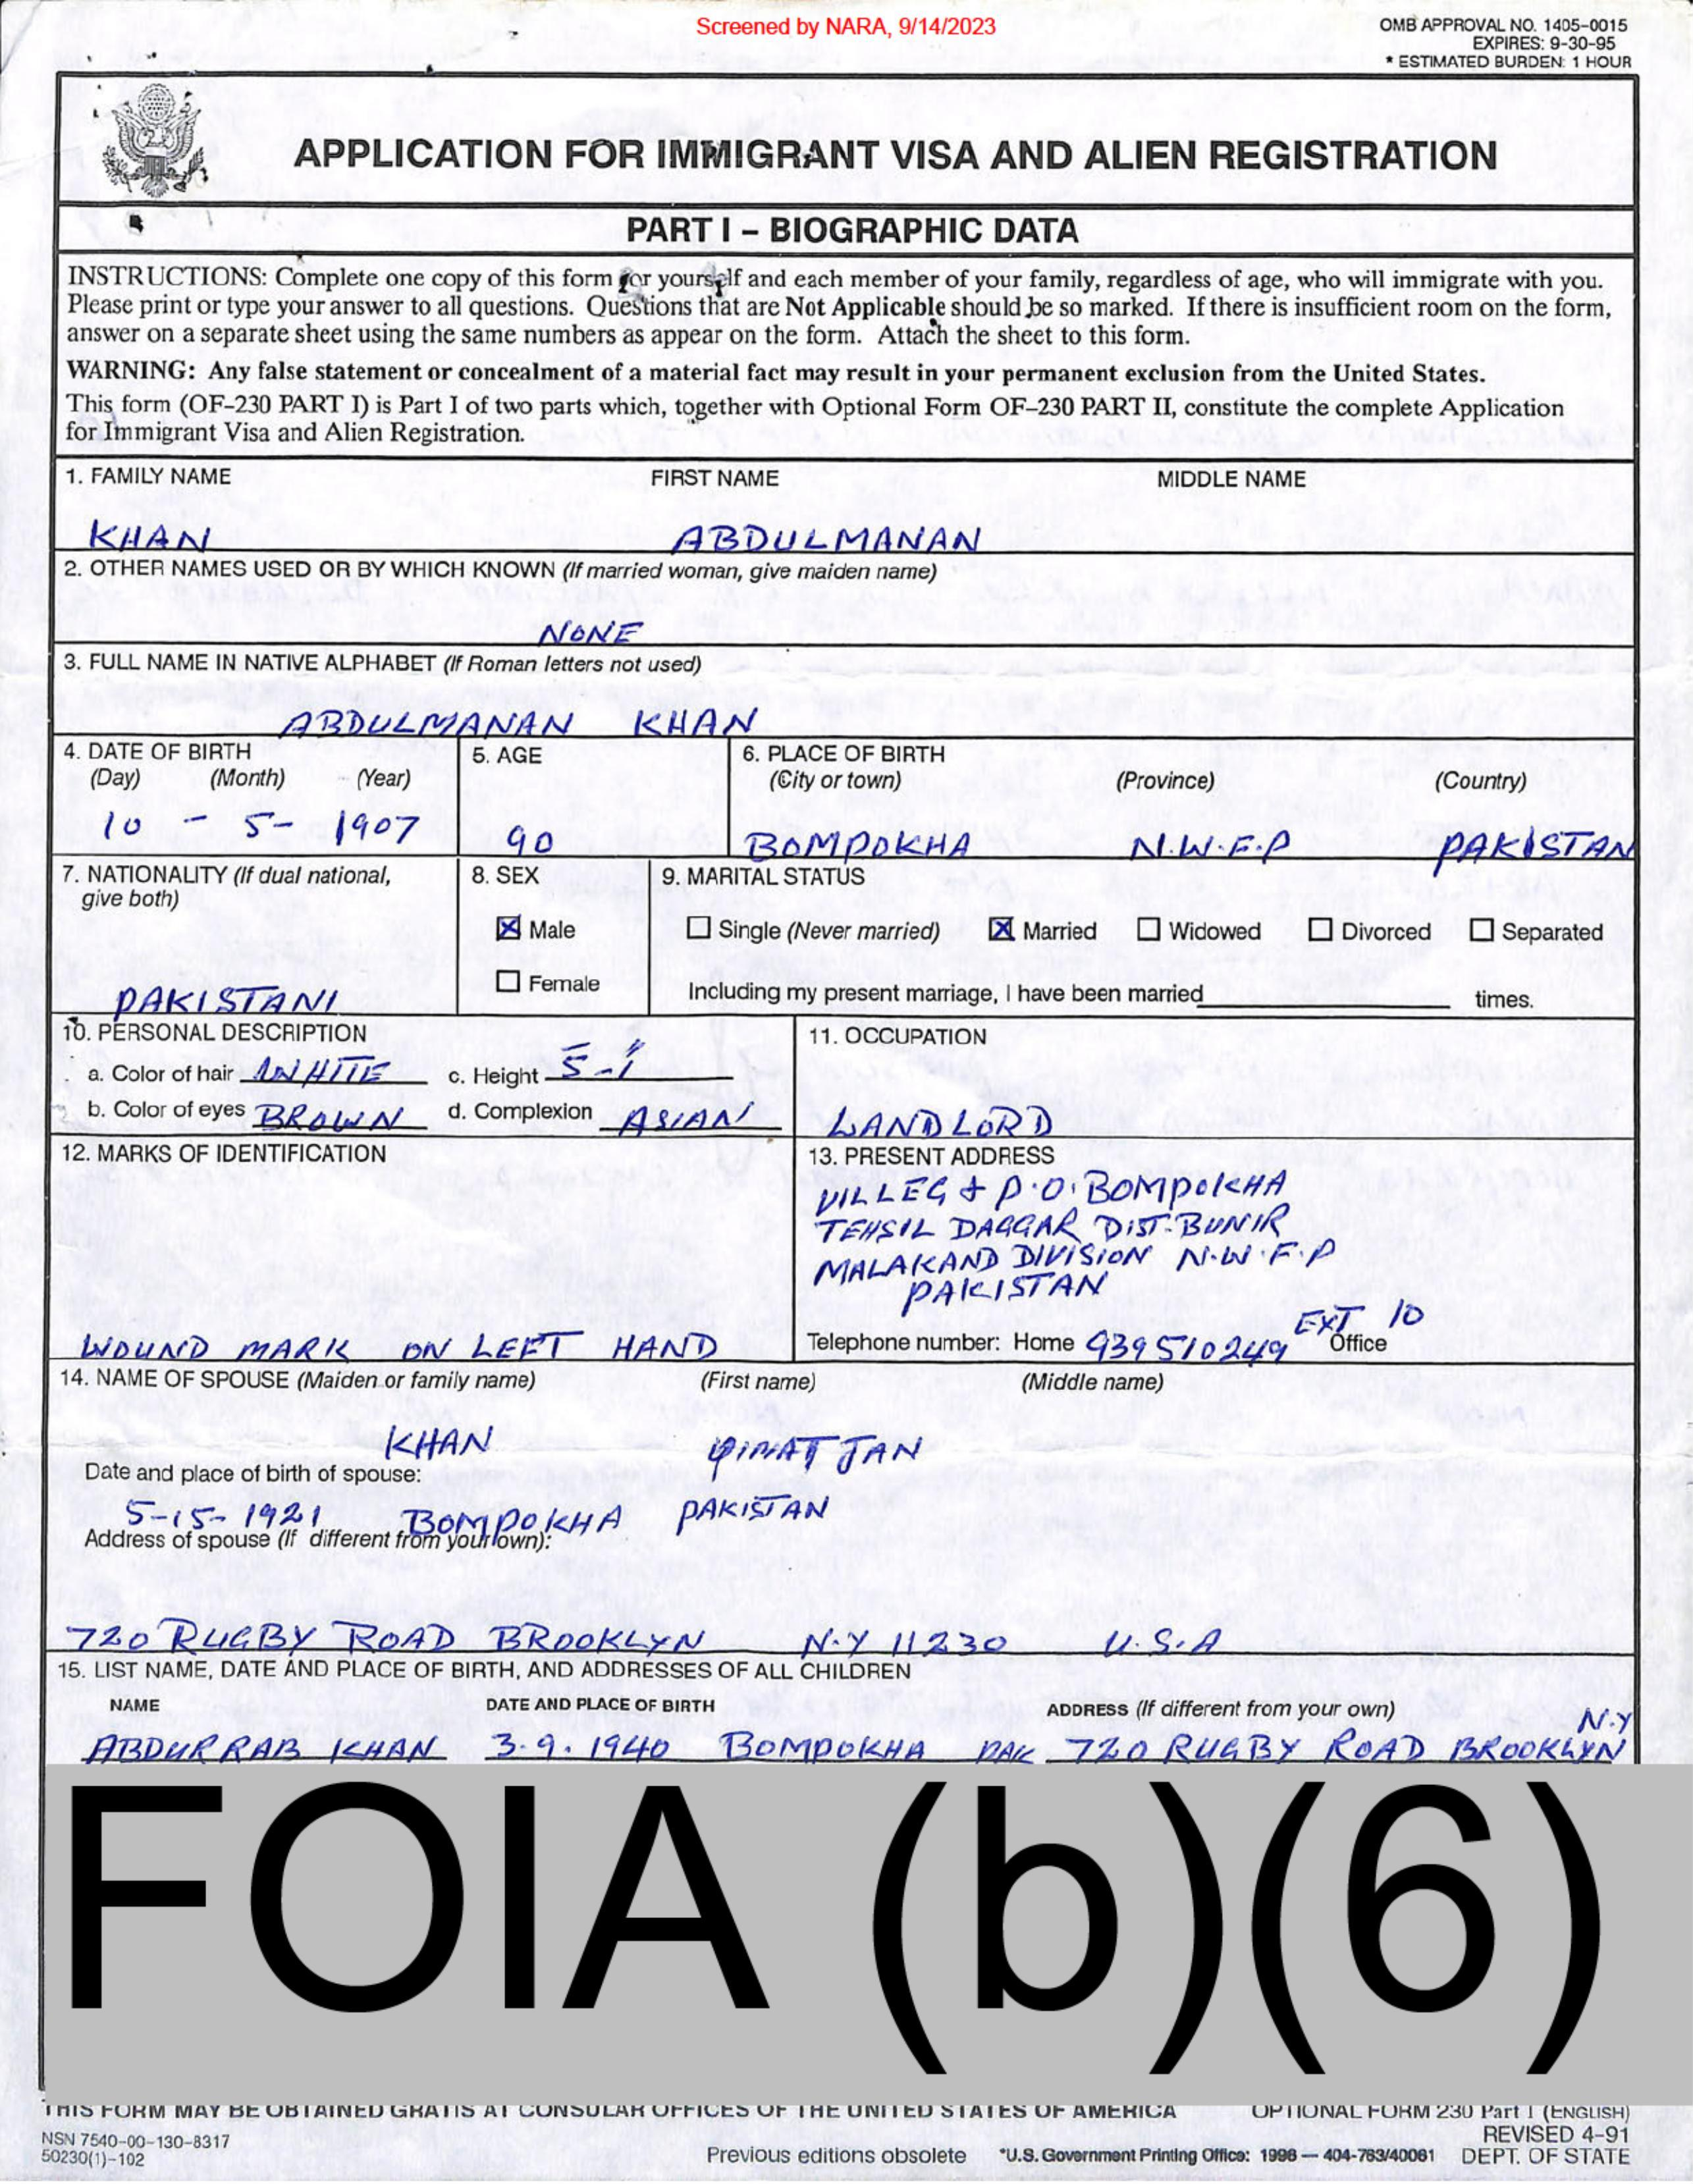 Screened by NARA, 9/14/2023
OMB APPROVAL NO. 1405-0015
EXPIRES: 9-30-95
* ESTIMATED BURDEN: 1 HOUR
APPLICATION FOR IMMIGRANT VISA AND ALIEN REGISTRATION
PART I – BIOGRAPHIC DATA
INSTRUCTIONS: Complete one copy of this form for yourself and each member of your family, regardless of age, who will immigrate with you.
Please print or type your answer to all questions. Questions that are Not Applicable should be so marked. If there is insufficient room on the form,
answer on a separate sheet using the same numbers as appear on the form. Attach the sheet to this form.
WARNING: Any false statement or concealment of a material fact may result in your permanent exclusion from the United States.
This form (OF-230 PART I) is Part I of two parts which, together with Optional Form OF-230 PART II, constitute the complete Application
for Immigrant Visa and Alien Registration.
1. FAMILY NAME FIRST NAME MIDDLE NAME
KHAN ABDULMANAN
2. OTHER NAMES USED OR BY WHICH KNOWN (If married woman, give maiden name)
NONE
3. FULL NAME IN NATIVE ALPHABET (If Roman letters not used)
ABDULMANAN KHAN
4. DATE OF BIRTH 5. AGE 6. PLACE OF BIRTH
(Day) (Month) (Year) (City or town) (Province) (Country)
10 - 5- 1907 90 BOMPOKHA N.W.F.P PAKISTAN
7. NATIONALITY (If dual national, 8. SEX 9. MARITAL STATUS
give both)
Male Single (Never married) Married Widowed Divorced Separated
Female Including my present marriage, I have been married times.
PAKISTANI
10. PERSONAL DESCRIPTION 11. OCCUPATION
a. Color of hair WHITE c. Height 5-1
b. Color of eyes BROWN d. Complexion ASIAN LANDLORD
12. MARKS OF IDENTIFICATION 13. PRESENT ADDRESS
VILLEG & P.O. BOMPOKHA
TEHSIL DAGGAR DIST-BUNIR
MALAKAND DIVISION N.W.F.P
PAKISTAN
EXT 10
WOUND MARK ON LEFT HAND Telephone number: Home 939510249 Office
14. NAME OF SPOUSE (Maiden or family name) (First name) (Middle name)
KHAN JAN
Date and place of birth of spouse:
5-15-1921 BOMPOKHA PAKISTAN
Address of spouse (If different from your own):
720 RUGBY ROAD BROOKLYN N.Y 11230 U.S.A
15. LIST NAME, DATE AND PLACE OF BIRTH, AND ADDRESSES OF ALL CHILDREN
NAME DATE AND PLACE OF BIRTH ADDRESS (If different from your own)
N.Y
ABDURRAB KHAN 3.9.1940 BOMPOKHA PAK 720 RUGBY ROAD BROOKLYN
FOIA (b)(6)
THIS FORM MAY BE OBTAINED GRATIS AT CONSULAR OFFICES OF THE UNITED STATES OF AMERICA OPTIONAL FORM 230 Part I (ENGLISH)
NSN 7540-00-130-8317 REVISED 4-91
50230(1)-102 Previous editions obsolete *U.S. Government Printing Office: 1996 — 404-763/40061 DEPT. OF STATE